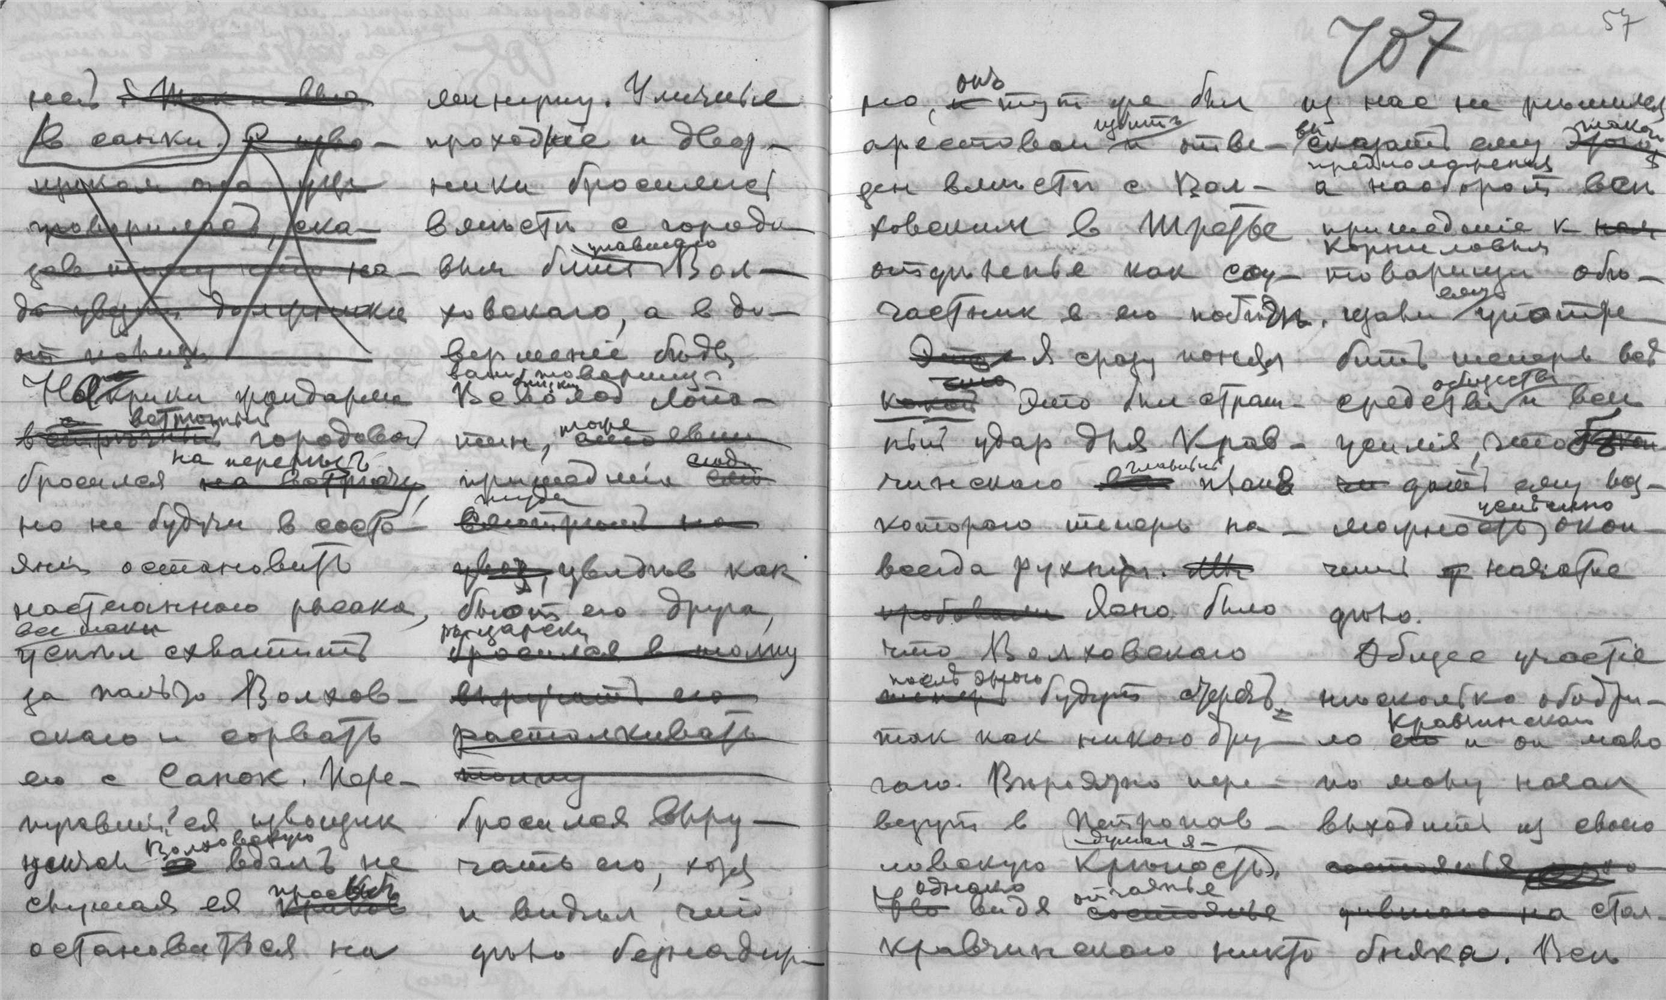 707
57
ней
в санки.)
На крики жандарма
встречный городовой
бросился на перерез
но не будучи в состо-
янии остановить
настеганного рысака,
все таки
успел схватить
за пальто Волхов-
ского и сорвать
его с санок. Пере-
пугавшийся извозчик
умчал Волховскую
вдаль не
слушая ея просьб
остановиться на
минуту. Уличные
прохожие и двор-
ники бросились
вместе с городо-
вым бить упавшего Вол-
ховского, а в до-
вершение беды
ваш товарищ
Всеволод Лопа-
тин, тоже
пришедший сюда
увидев как
бьют его друга,
рыцарски
бросился выру-
чать его, хотя
и видел что
дело безнадеж-
но, он тут же был
арестован и отве-
ден вместе с Вол-
ховским в Третье
отделенье как соу-
частник в его побеге.
Я сразу понял
Это был страш-
ный удар для Крав-
чинского главный план
которого теперь на-
всегда рухнул.
Ясно было
что Волховского
после этого будут стеречь
так как никого дру-
гого. Вероятно пере-
везут в Петропав-
ловскую Крепость,
думал я
однако видя отчаянье
Кравчинского никто
из нас не решился
высказать ему такого
предположения
а наоборот все
пришедшие к
Корниловым
товарищи обе-
щали ему употре-
бить теперь все
средства общества и все
усилия, что
дать ему воз-
можность успешно окон-
чить начатое
дело.
Общее участие
несколько ободри-
ло Кравчинского и он мало
по малу начал
выходить из своего
стол-
бняка. Все